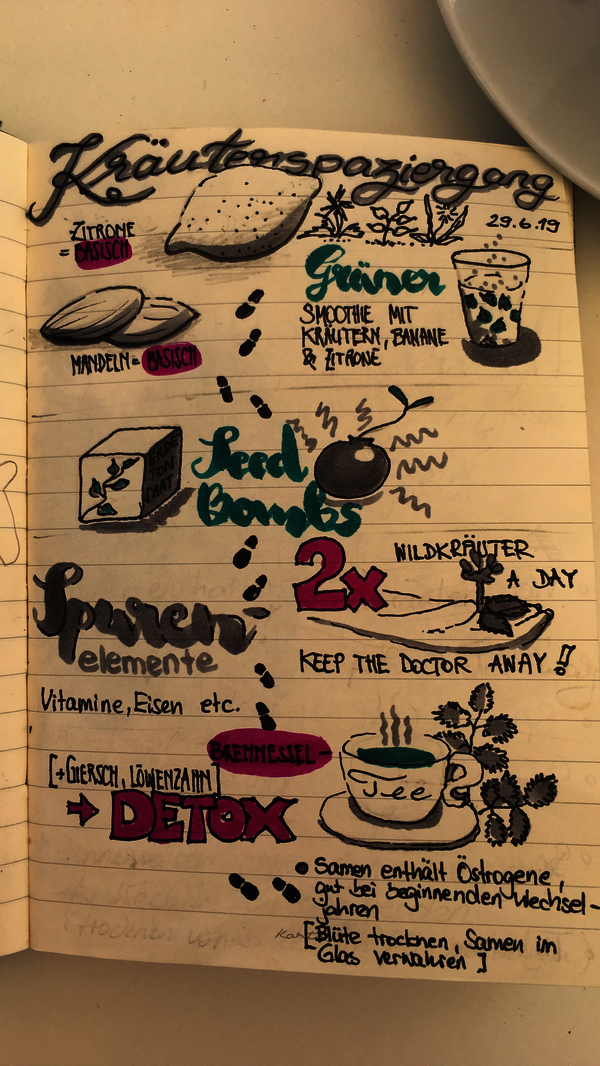 Kräuterspaziergang
29.6.19
ZITRONE
= BASISCH
Grüner
SMOOTHIE MIT
KRÄUTERN, BANANE
& ZITRONE
MANDELN = BASISCH
Seed
Bombs
ERDE
TON
2x WILDKRÄUTER
A DAY
KEEP THE DOCTOR AWAY !!
Spuren
elemente
Vitamine, Eisen etc.
BRENNESSEL -
Tee
[+GIERSCH, LÖWENZAHN]
→ DETOX
• Samen enthält Östrogene,
gut bei beginnenden Wechsel-
jahren
[Blüte trocknen, Samen im
Glas verwahren]